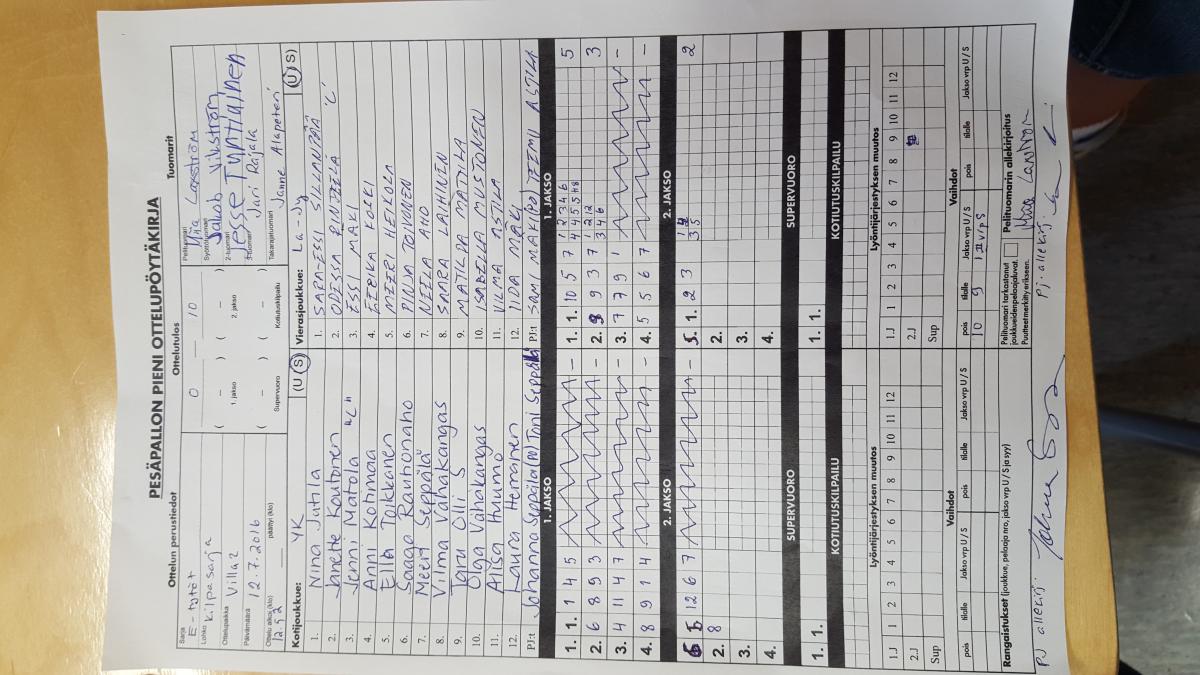 PESÄPALLON PIENI OTTELUPÖYTÄKIRJA
Ottelun perustiedot Ottelutulos Tuomarit
Sarja E-tytöt
Lohko Kilpasarja
Ottelupaikka Villa 2
Päivämäärä 12.7.2016
Ottelu alkoi (klo) päättyi (klo)
0 – 10
( – ) ( – )
1. jakso 2. jakso
( – ) ( – )
Supervuoro Kotiutuskilpailu
Pelituomari
Syöttötuomari Jakob Vikström
2-tuomari Jesse
3-tuomari Jari Rajala
Takarajatuomari Janne Alapeteri
Kotijoukkue: YK (U S)
1. Nina Jutila
2. Janette Kautonen
3. Jenni Mattila "C"
4. Anni Kotimaa
5. Ella Tolkkanen
6. Saaga Rautionaho
7. Meeri Seppälä
8. Vilma Vähäkangas
9. Taru Olli S
10. Olga Vähäkangas
11. Anisa Huhumo
12. Laura Hernanen
PJ:t Johanna Seppälä (PJ) Toni Seppälä
Vierasjoukkue: La-Jy (U S)
1. SARA-ESSI SILLANPÄÄ
2. ODESSA RINTELÄ 'C'
3. ESSI MÄKI
4. EERIKA KOSKI
5. MEERI HEIKOLA
6. PINJA TOIVONEN
7. NEELA AHO
8. SAARA LAIHINEN
9. MATILDA MATTILA
10. ISABELLA MUSTONEN
11. VILMA ASTILA
12. IIDA MÄKI
PJ:t SAMI MÄKI (PJ) TEEMU ASTILA
1. JAKSO 1. JAKSO
1. 1. 1 4 5 –
2. 6 8 9 3 –
3. 4 11 4 7 –
4. 8 9 1 4 –
1. 1. 10 5 7 5
2. 8 9 3 7 3
3. 7 7 9 1 –
4. 5 5 6 7 –
2. JAKSO 2. JAKSO
5 12 6 7 –
2. 8
3.
4.
1. 2 3 2
2.
3.
4.
SUPERVUORO SUPERVUORO
1. 1. 1. 1.
KOTIUTUSKILPAILU KOTIUTUSKILPAILU
Lyöntijärjestyksen muutos Lyöntijärjestyksen muutos
1.J 1 2 3 4 5 6 7 8 9 10 11 12 1.J 1 2 3 4 5 6 7 8 9 10 11 12
2.J 2.J
Sup Sup
Vaihdot Vaihdot
pois tilalle Jakso vrp U / S pois tilalle Jakso vrp U / S
pois tilalle Jakso vrp U / S pois tilalle Jakso vrp U / S
10 9
Rangaistukset (joukkue, pelaaja nro, jakso vrp U / S ja syy)
Pelituomari tarkastanut joukkueiden pelaajaluvat.
Puutteet merkitty erikseen.
Pelituomarin allekirjoitus
PJ allekirj.
Pj. allekirj.